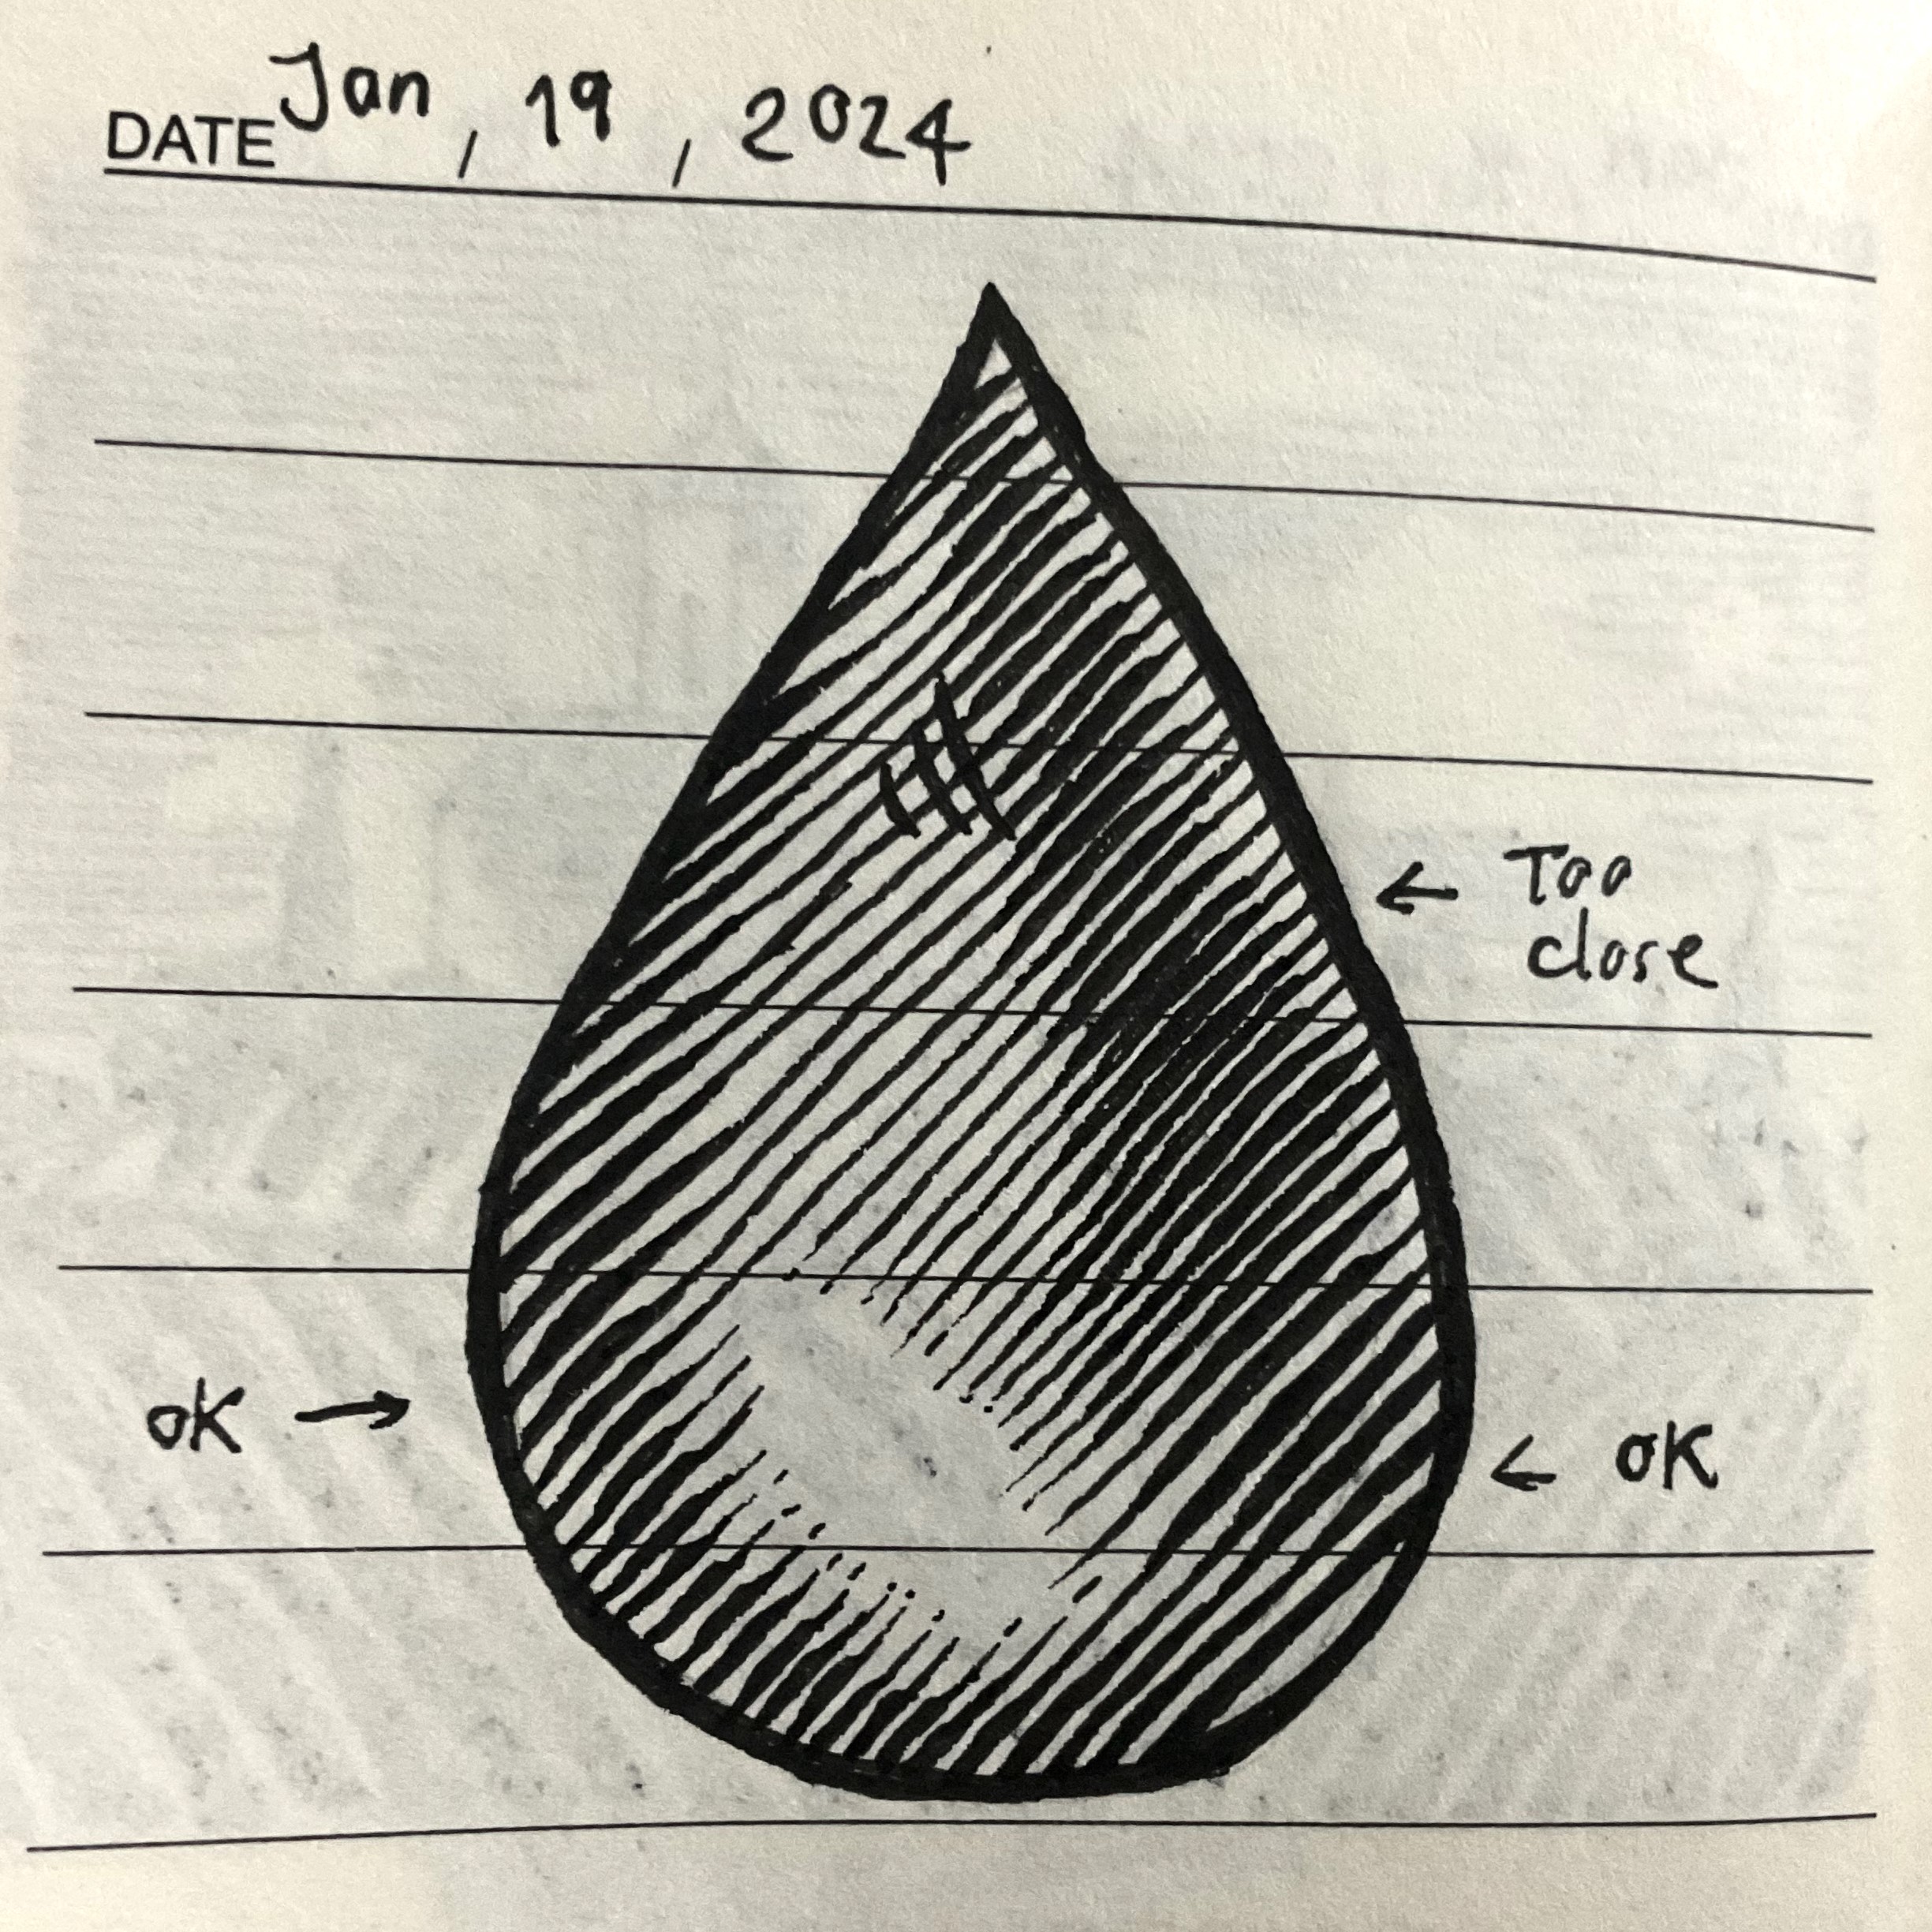 DATE Jan, 19, 2024
← Too
close
OK →
← OK